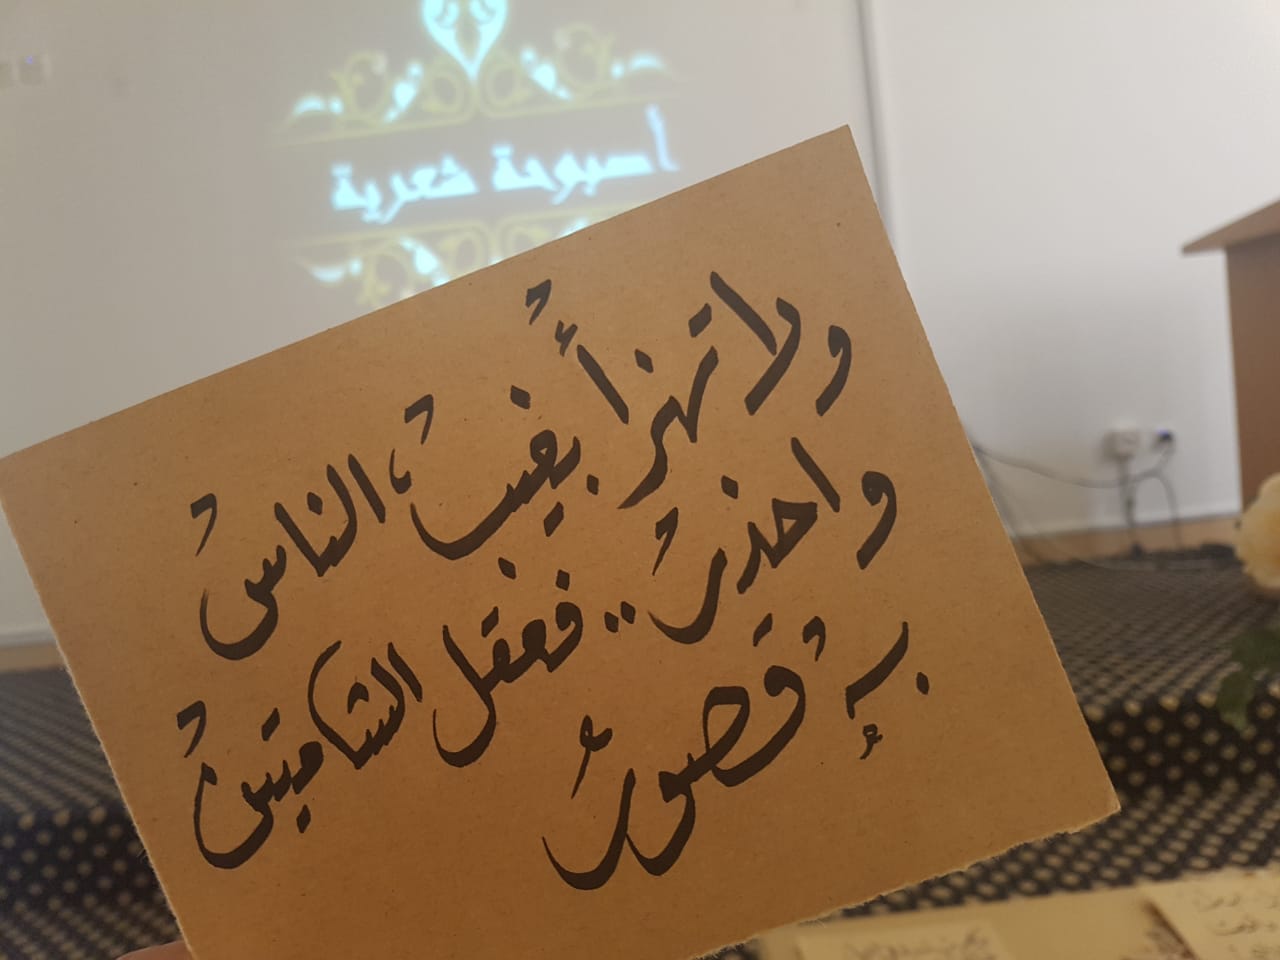 أصبوحة شعرية
ولا تهزأ بغيب الناس
واحذر .. فعقل الشامتين
به قصور